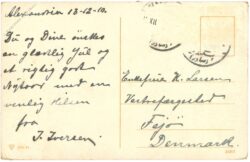 Alexandria 13-12-10.
Du og Dine ønskes
en glædelig Jul og
et rigtig godt
Nytaar med en
venlig Hilsen
fra
J. Iversen
Enkefrue H. Larsen
Vestrefærgested
Fejø
Danmark